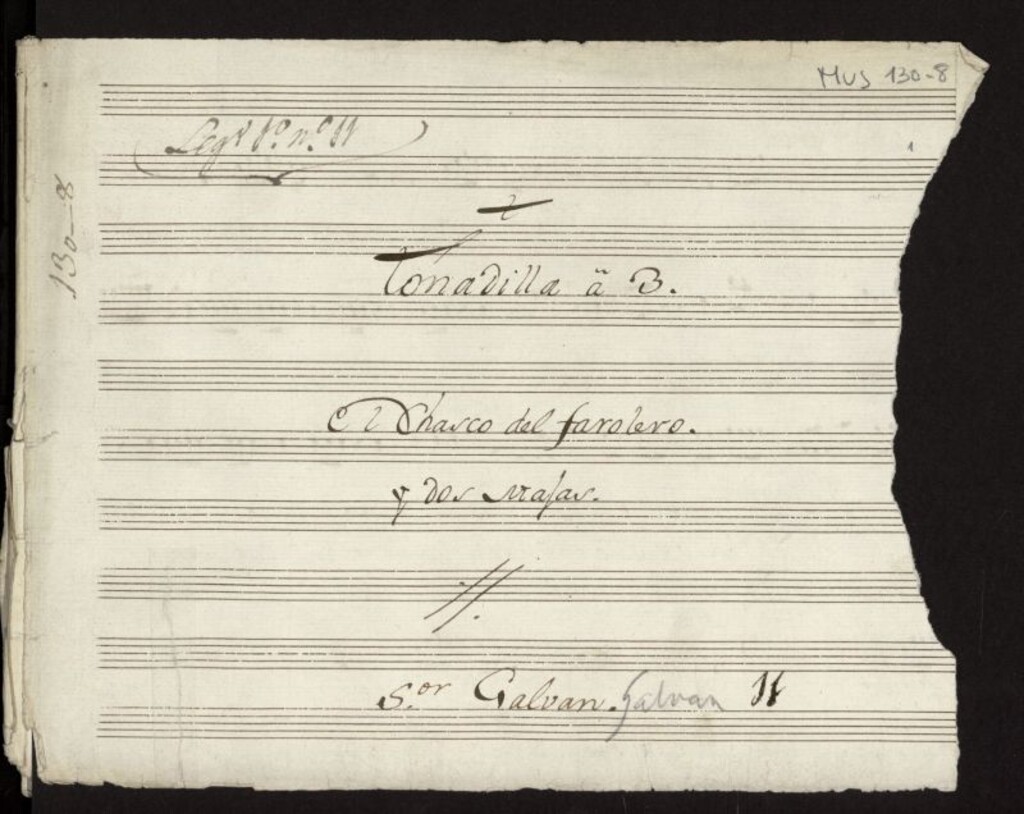 Mus 130-8
Leg.º 1.º n.º 11
1
130-8
Tonadilla a 3.
El Chasco del farolero.
y dos Majas.
//.
S.or Galvan. Galvan 11